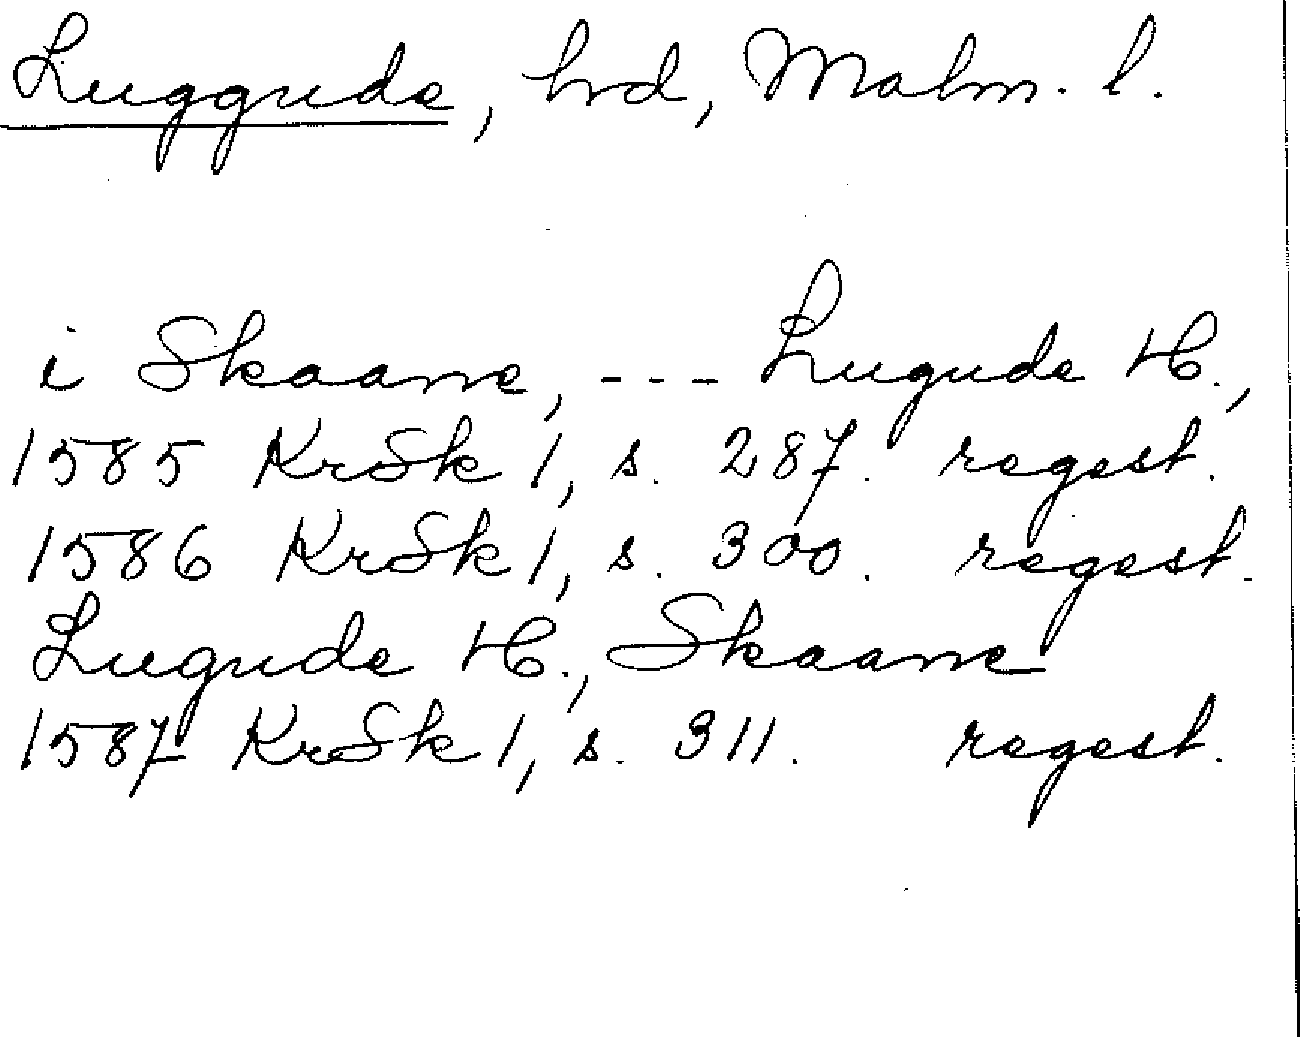 Luggude, hrd, Malm. l.
i Skaane, --- Lugude H.,
1585 KrSk 1, s. 287. regest.
1586 KrSk 1, s. 300. regest.
Lugude H., Skaane
1587 KrSk 1, s. 311. regest.